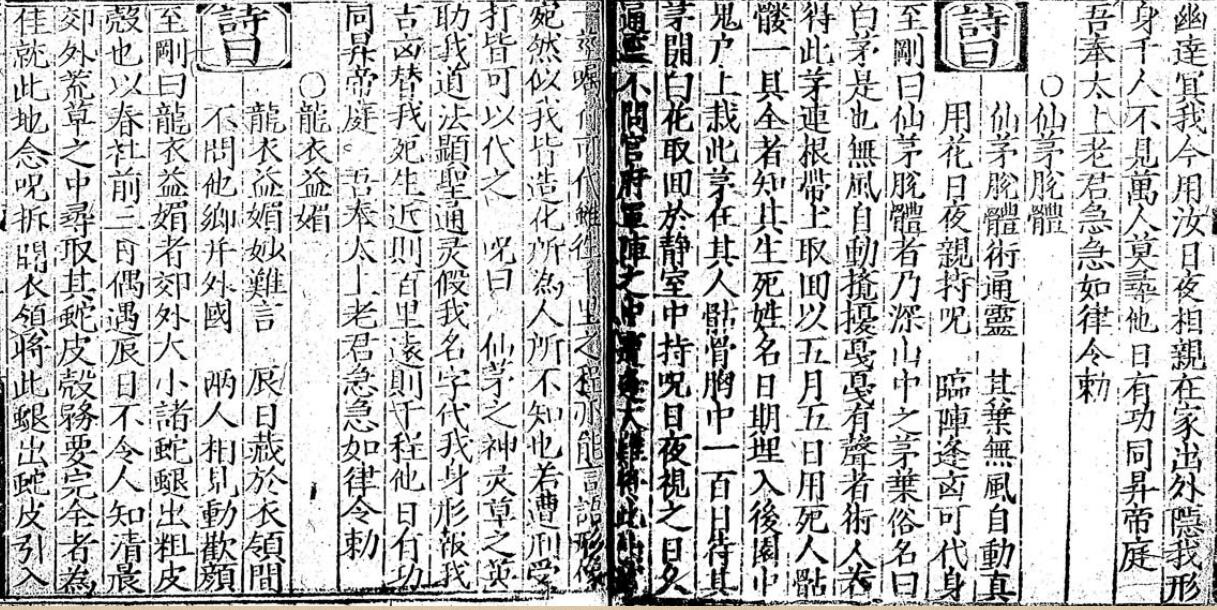 幽達冥我今用汝日夜相親在家出外隱我形
身千人不見萬人莫尋他日有功同昇帝庭
吾奉太上老君急急如律令勅
○仙茅脫體
仙茅脫體術通靈 其葉無風自動真
詩曰
用花日夜親持呪 臨陣逢凶可代身
至剛曰仙茅脫體者乃深山中之茅葉俗名曰
白茅是也無風自動攪擾戛戛有聲者術人若
得此茅連根帶土取回以五月五日用死人骷
髏一具全者知其生死姓名日期埋入後園中
鬼户上栽此茅在其人骷骨胸中一百日待其
茅開白花取回於靜室中持呪日夜視之日久
通靈不問官府軍陣之中大難將此
可代雖千里之程亦能言語形像
宛然似我皆造化所為人所不知也若遭刑受
打皆可以代之 呪曰 仙茅之神灵草之英
助我道法顯聖通灵假我名字代我身形報我
吉凶替我死生近則百里遠則千程他日有功
同昇帝庭 吾奉太上老君急急如律令勅
○龍衣益媚
龍衣益媚妙難言 辰日藏於衣領間
詩曰
不問他鄉并外國 兩人相見動歡顏
至剛曰龍衣益媚者郊外大小諸蛇蛻出粗皮
殼也以春社前二月偶遇辰日不令人知清晨
郊外荒草之中尋取其蛇皮殼務要完全者為
佳就此地念呪拆開衣領將此蛻出蛇皮引入